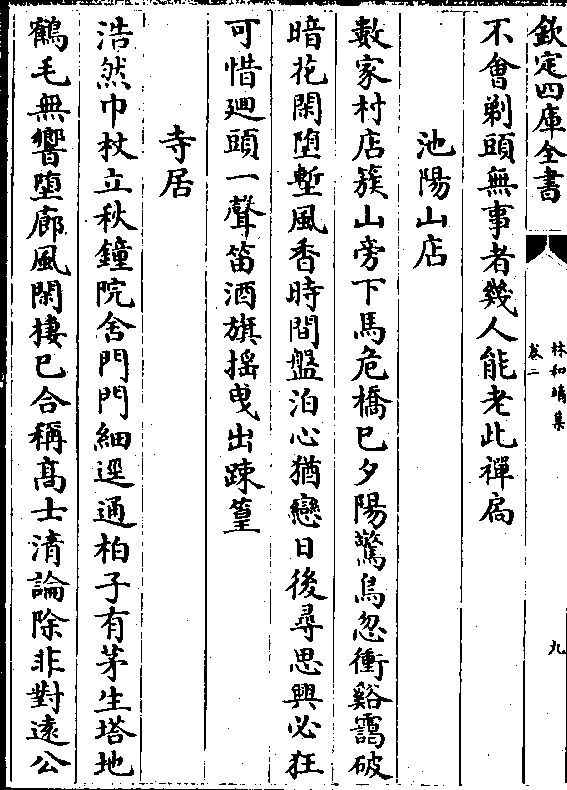 欽定四庫全書
林和靖集
卷二
九
不會剃頭無事者幾人能老此禪扃
池陽山店
數家村店簇山旁下馬危橋已夕陽驚鳥忽衝谿靄破
暗花閑堕塹風香時間盤泊心猶戀日後尋思興必狂
可惜廻頭一聲笛酒旗揺曵出踈篁
寺居
浩然巾杖立秋鐘院舍門門細逕通柏子有茅生塔地
鶴毛無響堕廊風閑棲已合稱髙士清論除非對逺公